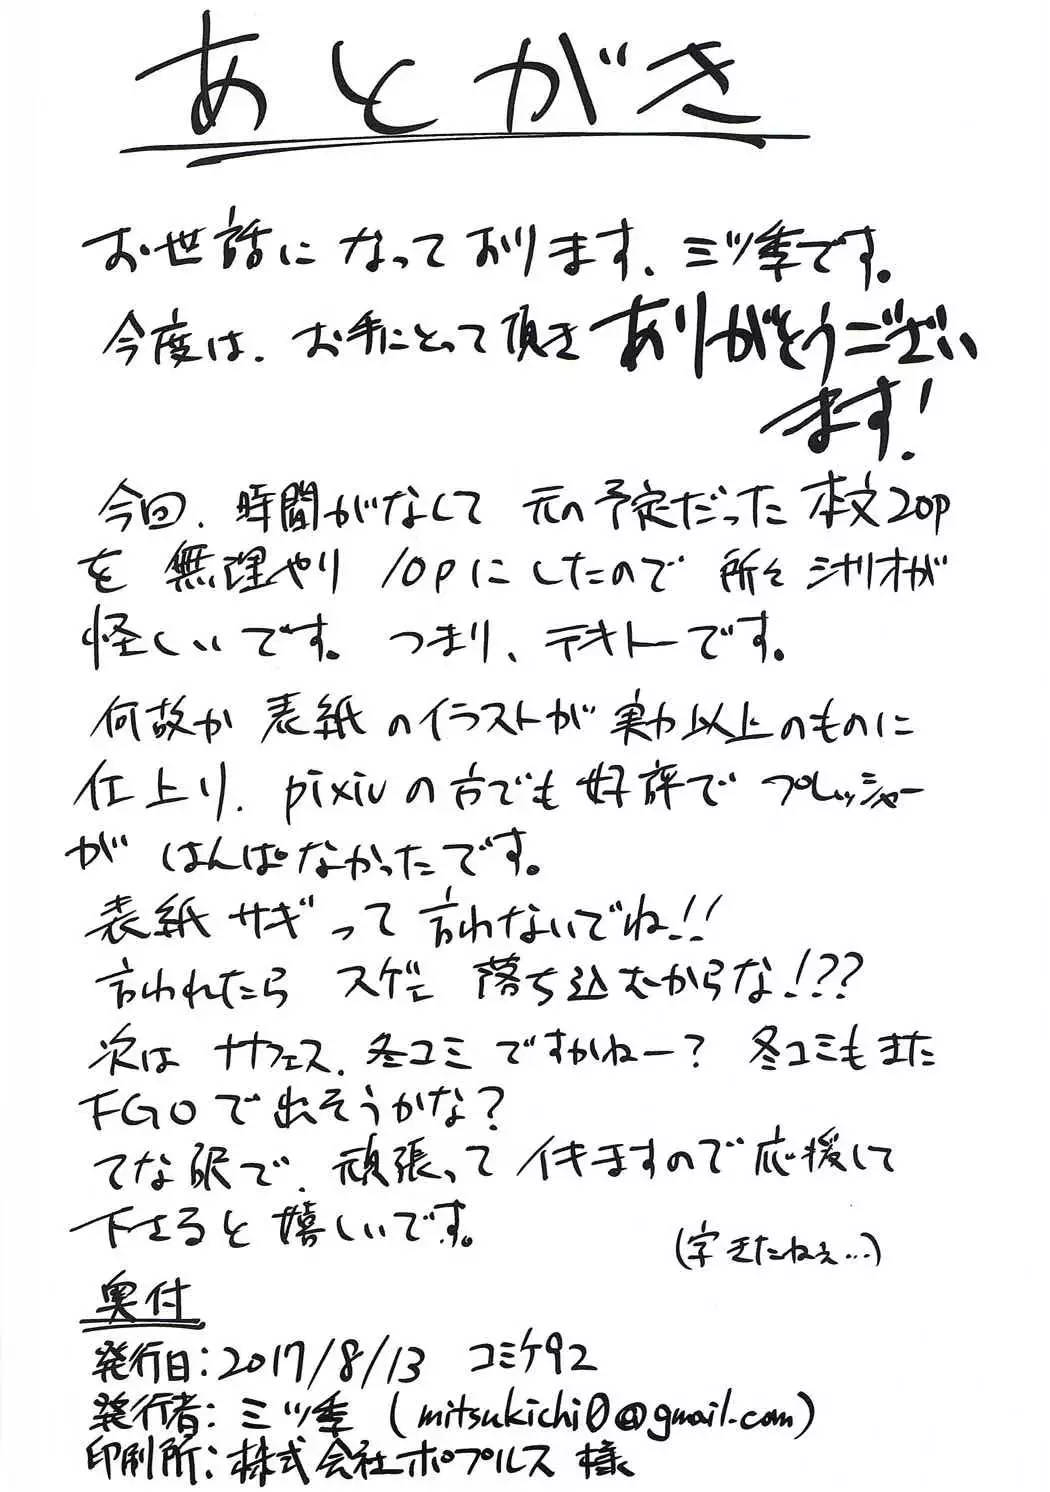 あとがき
お世話になっております、ミツ季です。
今度は、お手にとって頂きありがとうござい
ます!
今回、時間がなくて元の予定だった本文20p
を無理やり10pにしたので所々シナリオが
怪しいです。つまり、テキトーです。
何故か表紙のイラストが実力以上のものに
仕上り、pixivの方でも好評でプレッシャー
がはんぱなかったです。
表紙サギって言わないでね!!
言われたらスゲェ落ち込むからな!??
次はサナフェス、冬コミですかねー?冬コミもまた
FGOで出そうかな?
てな訳で、頑張ってイキますので応援して
下さると嬉しいです。
(字きたねぇ...)
奥付
発行日:2017/8/13 コミケ92
発行者:ミツ季 (mitsukichi0@gmail.com)
印刷所:株式会社ポプルス 様